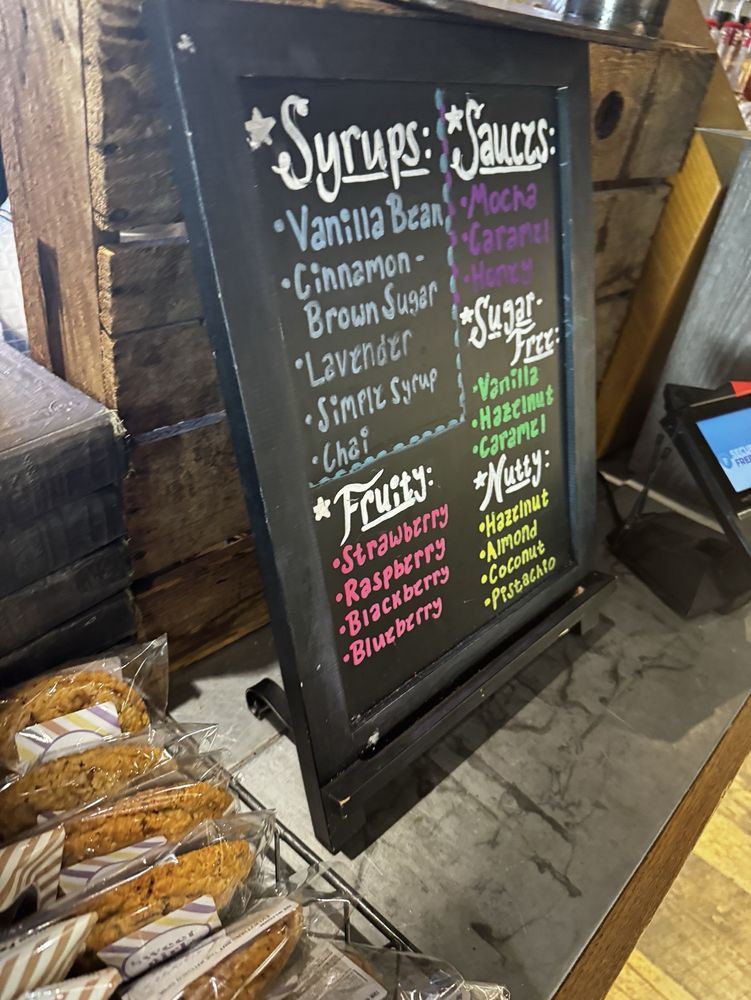 Syrups:
Vanilla Bean
Cinnamon-
Brown Sugar
Lavender
Simple Syrup
Chai
Fruity:
Strawberry
Raspberry
Blackberry
Blueberry
Sauces:
Mocha
Caramel
Honey
Sugar-
Free:
Vanilla
Hazelnut
Caramel
Nutty:
Hazelnut
Almond
Coconut
Pistachio